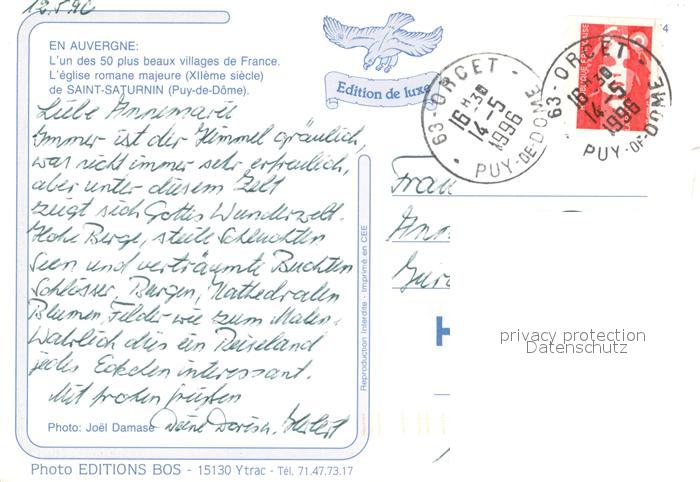 12.5.96
EN AUVERGNE:
L'un des 50 plus beaux villages de France.
L'église romane majeure (XIIème siècle)
de SAINT-SATURNIN (Puy-de-Dôme).
Edition de luxe
63-ORCET
16 H 30
14-5
1996
PUY-DE-DOME
63-ORCET
16 H 30
14-5
1996
PUY-DE-DOME
4
Liebe Annemarie
Immer ist der Himmel gräulich,
was nicht immer sehr erfreulich,
aber unter diesem Zelt
zeigt sich Gottes Wunderwelt.
Hohe Berge, steile Schluchten
Seen und verträumte Buchten
Schlösser, Burgen, Kathedralen
Blumen, Felder wie zum Malen.
Wahrlich dies ein Reiseland
jedes Eckchen interessant.
Mit frohen Grüßen
Deine Doris u. Herbert
Frau
Ann
Reproduction Interdite - Imprimé en CEE
Photo: Joël Damase
Photo EDITIONS BOS - 15130 Ytrac - Tél. 71.47.73.17
privacy protection
Datenschutz